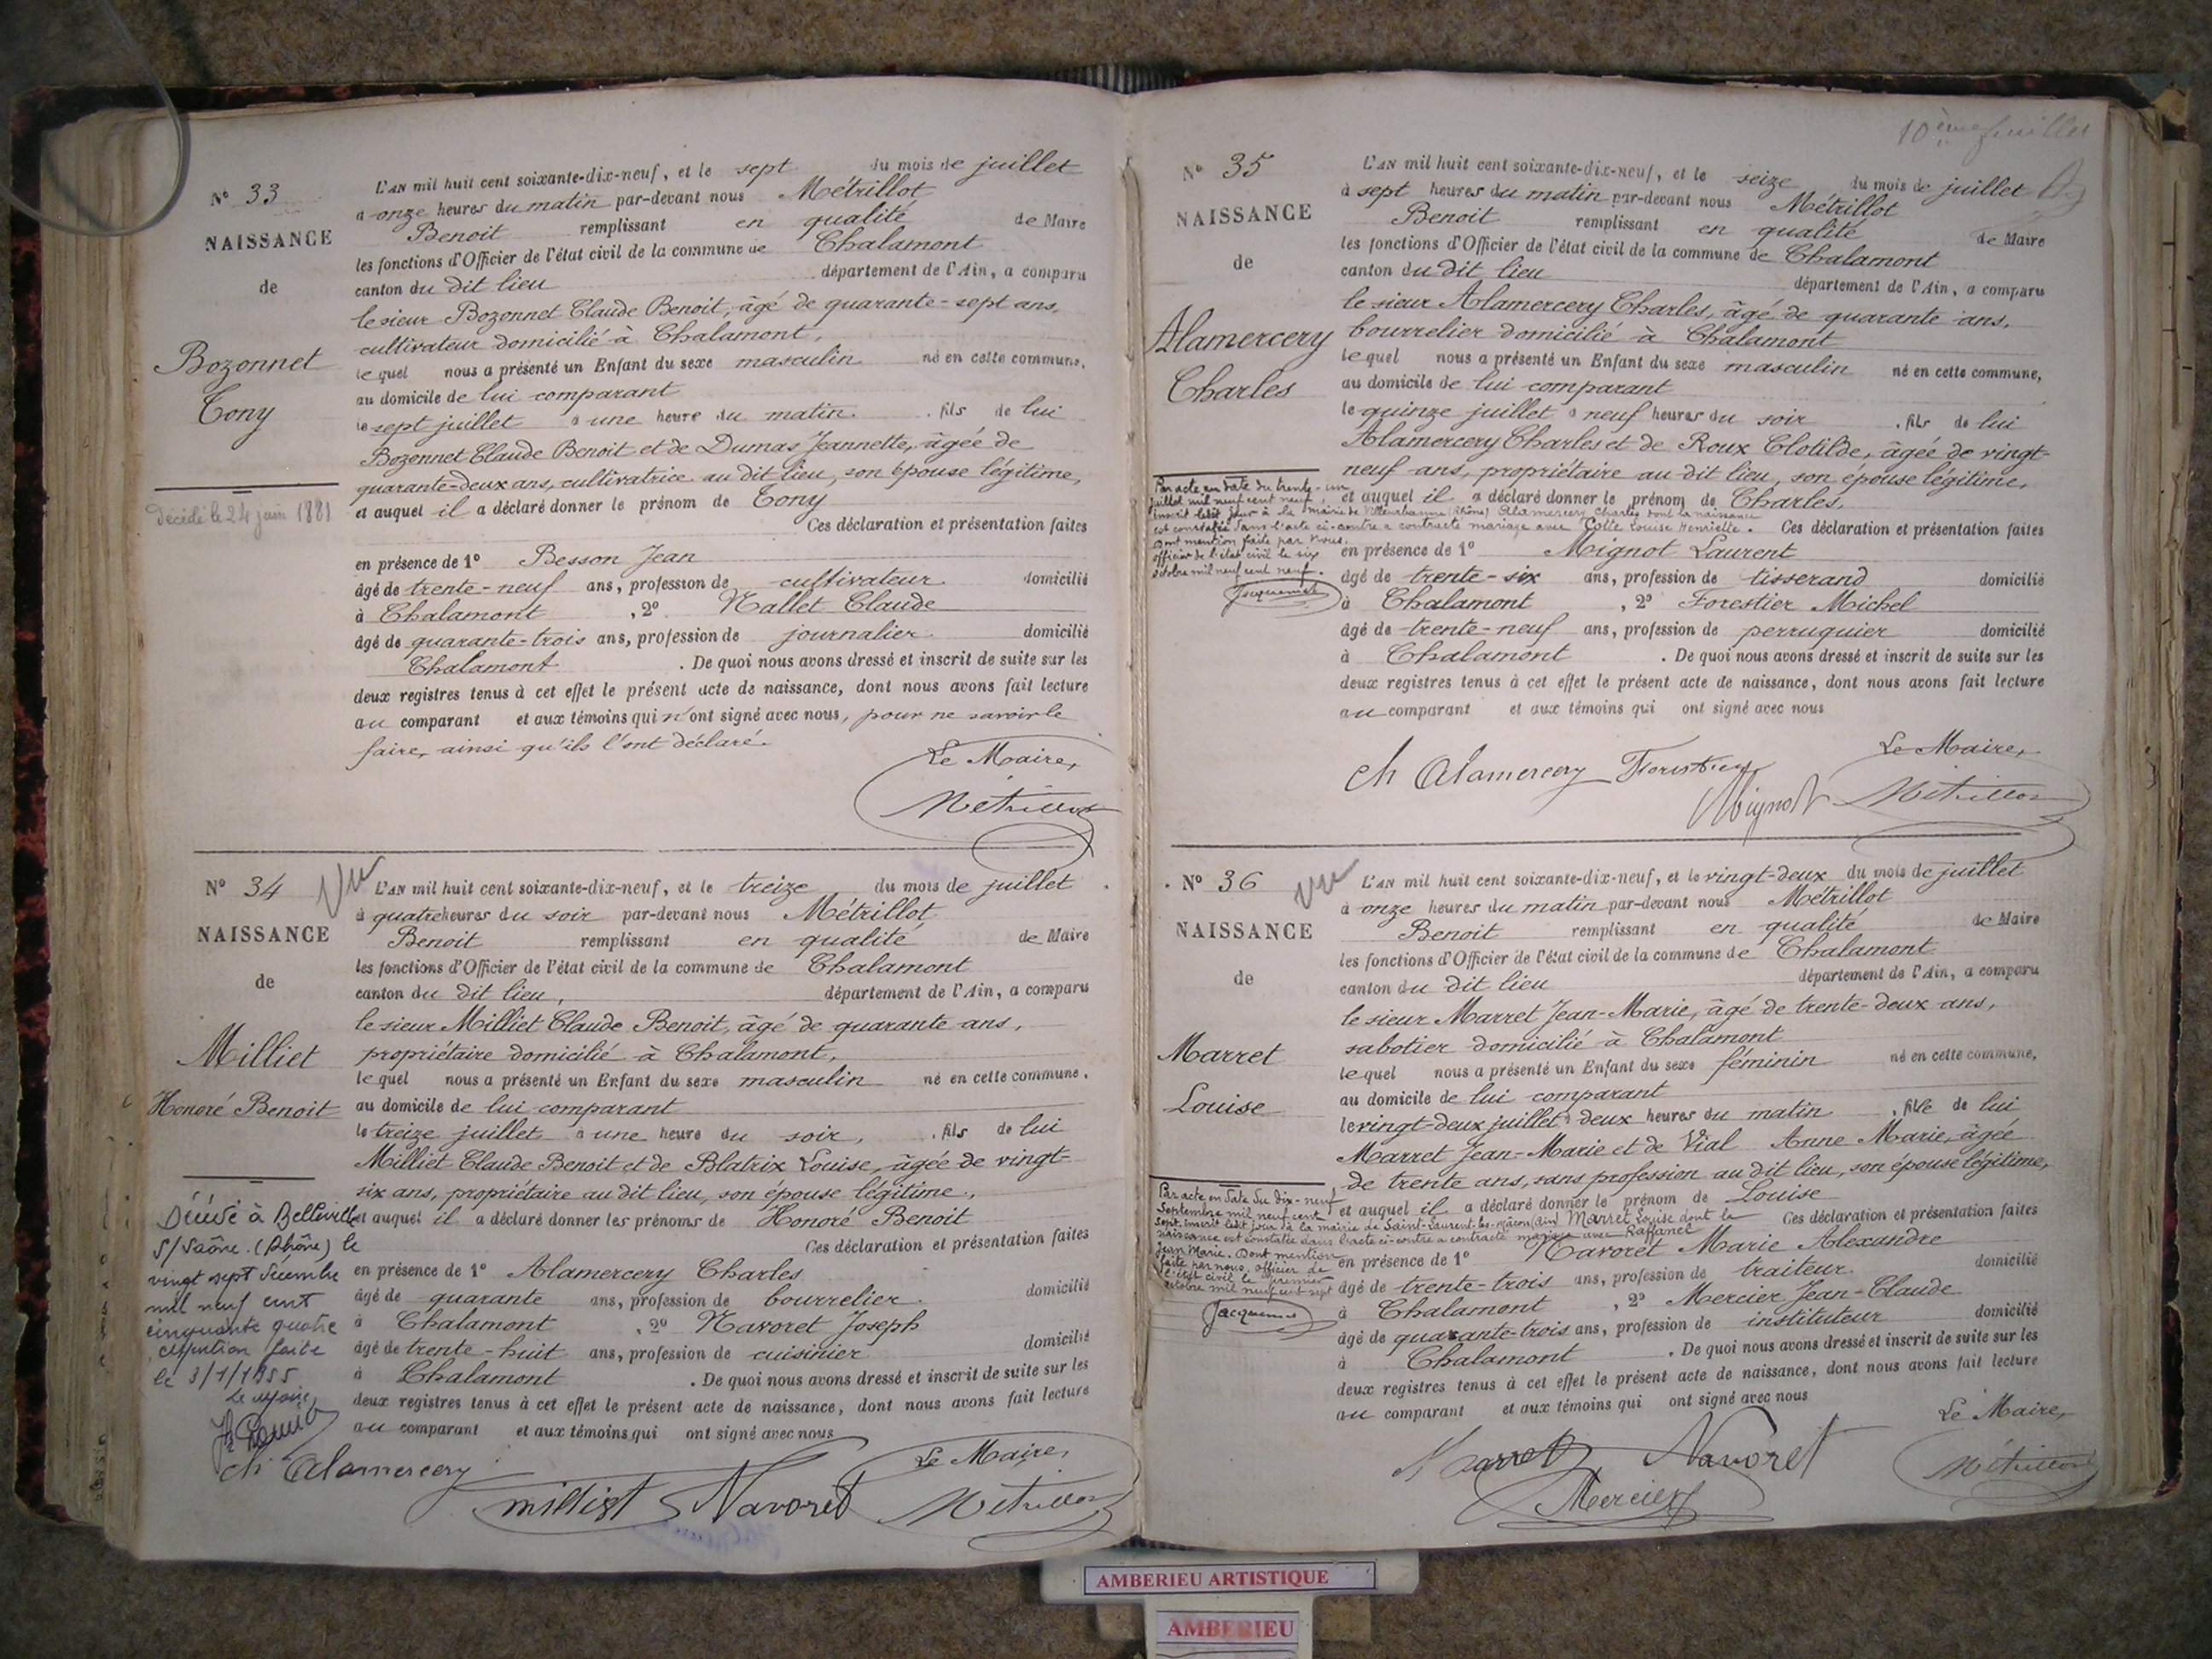 N° 33
NAISSANCE
de
Bozonnet
Tony
Décédé le 24 juin 1881
L'AN mil huit cent soixante-dix-neuf, et le sept du mois de juillet
à onze heures du matin par-devant nous Métrillot
Benoit remplissant en qualité de Maire
les fonctions d'Officier de l'état civil de la commune de Chalamont
canton du dit lieu département de l'Ain, a comparu
le sieur Bozonnet Claude Benoit, âgé de quarante-sept ans,
cultivateur domicilié à Chalamont,
lequel nous a présenté un Enfant du sexe masculin né en cette commune,
au domicile de lui comparant
le sept juillet à une heure du matin. , fils de lui
Bozonnet Claude Benoit et de Dumas Jeannette, âgée de
quarante-deux ans, cultivatrice au dit lieu, son épouse légitime,
et auquel il a déclaré donner le prénom de Tony
Ces déclaration et présentation faites
en présence de 1° Besson Jean
âgé de trente-neuf ans, profession de cultivateur domicilié
à Chalamont , 2° Nallet Claude
âgé de quarante-trois ans, profession de journalier domicilié
Chalamont . De quoi nous avons dressé et inscrit de suite sur les
deux registres tenus à cet effet le présent acte de naissance, dont nous avons fait lecture
au comparant et aux témoins qui n'ont signé avec nous, pour ne savoir le
faire, ainsi qu'ils l'ont déclaré.
Le Maire,
Métrillot
N° 34
Vu
NAISSANCE
de
Milliet
Honoré Benoit
Décédé à Belleville
s/Saône (Rhône) le
vingt sept décembre
mil neuf cent
cinquante quatre
mention faite
le 3/1/1955
Le Maire,
L'AN mil huit cent soixante-dix-neuf, et le treize du mois de juillet
à quatre heures du soir par-devant nous Métrillot
Benoit remplissant en qualité de Maire
les fonctions d'Officier de l'état civil de la commune de Chalamont
canton du dit lieu, département de l'Ain, a comparu
le sieur Milliet Claude Benoit, âgé de quarante ans,
propriétaire domicilié à Chalamont,
lequel nous a présenté un Enfant du sexe masculin né en cette commune,
au domicile de lui comparant
le treize juillet à une heure du soir, , fils de lui
Milliet Claude Benoit et de Blatrix Louise, âgée de vingt-
six ans, propriétaire au dit lieu, son épouse légitime,
et auquel il a déclaré donner les prénoms de Honoré Benoit
Ces déclaration et présentation faites
en présence de 1° Alamercery Charles
âgé de quarante ans, profession de bourrelier domicilié
à Chalamont , 2° Navoret Joseph
âgé de trente-huit ans, profession de cuisinier domicilié
à Chalamont . De quoi nous avons dressé et inscrit de suite sur les
deux registres tenus à cet effet le présent acte de naissance, dont nous avons fait lecture
au comparant et aux témoins qui ont signé avec nous
Le Maire,
Ch Alamercery
Milliet Navoret Métrillot
10ème feuillet
N° 35
NAISSANCE
de
Alamercery
Charles
Par acte en date du trente-un
juillet mil neuf cent neuf,
inscrit ledit jour à la mairie de Villeurbanne (Rhône) Alamercery Charles dont la naissance
est constatée dans l'acte ci-contre a contracté mariage avec Colle Louise Henriette.
Dont mention faite par nous
officier de l'état civil le six
octobre mil neuf cent neuf.
L'AN mil huit cent soixante-dix-neuf, et le seize du mois de juillet
à sept heures du matin par-devant nous Métrillot
Benoit remplissant en qualité de Maire
les fonctions d'Officier de l'état civil de la commune de Chalamont
canton du dit lieu département de l'Ain, a comparu
le sieur Alamercery Charles, âgé de quarante ans,
bourrelier domicilié à Chalamont
lequel nous a présenté un Enfant du sexe masculin né en cette commune,
au domicile de lui comparant
le quinze juillet à neuf heures du soir , fils de lui
Alamercery Charles et de Roux Clotilde, âgée de vingt-
neuf ans, propriétaire au dit lieu, son épouse légitime,
et auquel il a déclaré donner le prénom de Charles.
Ces déclaration et présentation faites
en présence de 1° Mignot Laurent
âgé de trente-six ans, profession de tisserand domicilié
à Chalamont , 2° Forestier Michel
âgé de trente-neuf ans, profession de perruquier domicilié
à Chalamont . De quoi nous avons dressé et inscrit de suite sur les
deux registres tenus à cet effet le présent acte de naissance, dont nous avons fait lecture
au comparant et aux témoins qui ont signé avec nous
Le Maire,
Ch Alamercery Forestier
Mignot Métrillot
N° 36
Vu
NAISSANCE
de
Marret
Louise
Par acte en date du dix-neuf
septembre mil neuf cent
sept, inscrit ledit jour à la mairie de Saint-Laurent-les-Mâcon (Ain) Marret Louise dont la
naissance est constatée dans l'acte ci-contre a contracté mariage avec Raffanel
Jean Marie. Dont mention
faite par nous, officier de
l'état civil le premier
octobre mil neuf cent sept
L'AN mil huit cent soixante-dix-neuf, et le vingt-deux du mois de juillet
à onze heures du matin par-devant nous Métrillot
Benoit remplissant en qualité de Maire
les fonctions d'Officier de l'état civil de la commune de Chalamont
canton du dit lieu département de l'Ain, a comparu
le sieur Marret Jean-Marie, âgé de trente-deux ans,
sabotier domicilié à Chalamont
lequel nous a présenté un Enfant du sexe féminin né en cette commune,
au domicile de lui comparant
le vingt-deux juillet à deux heures du matin , fille de lui
Marret Jean-Marie et de Vial Anne Marie, âgée
de trente ans, sans profession au dit lieu, son épouse légitime,
et auquel il a déclaré donner le prénom de Louise
Ces déclaration et présentation faites
en présence de 1° Navoret Marie Alexandre
âgé de trente-trois ans, profession de traiteur domicilié
à Chalamont , 2° Mercier Jean-Claude
âgé de quarante-trois ans, profession de instituteur domicilié
à Chalamont . De quoi nous avons dressé et inscrit de suite sur les
deux registres tenus à cet effet le présent acte de naissance, dont nous avons fait lecture
au comparant et aux témoins qui ont signé avec nous
Le Maire,
Marret Navoret
Mercier Métrillot
AMBERIEU ARTISTIQUE
AMBERIEU